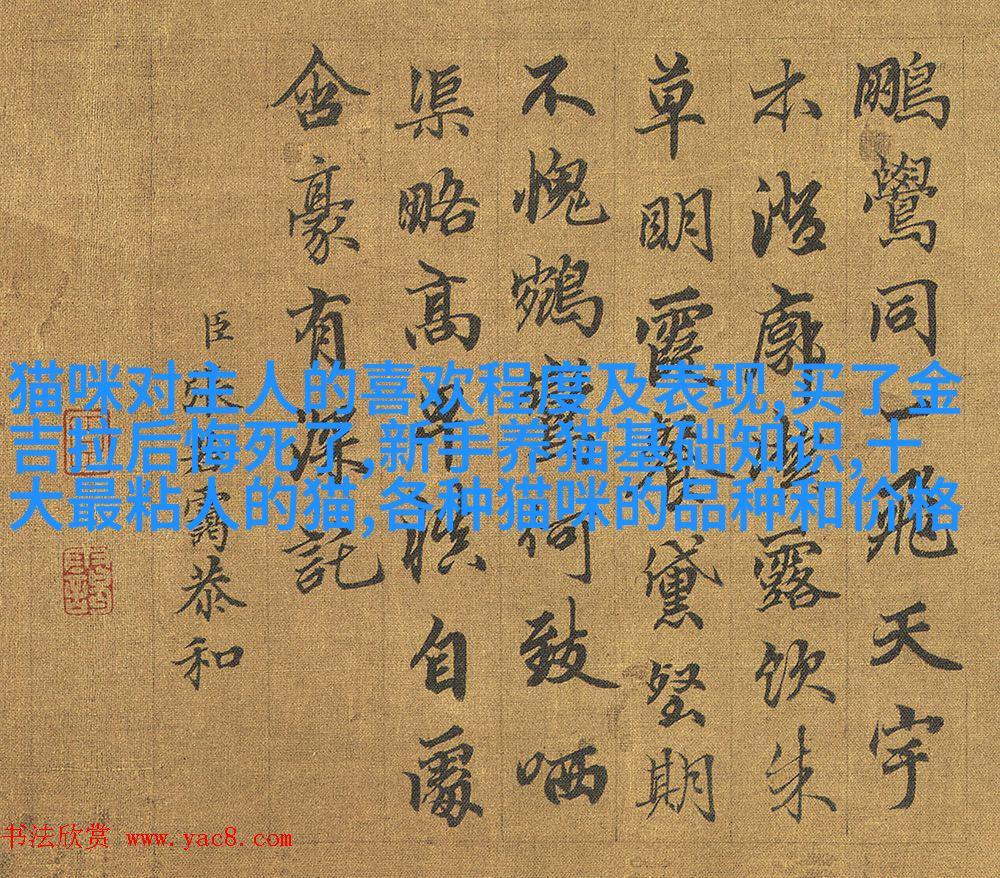 鵬鷽同一飛天宇
木澄廓湛露飲朱
草明霞黛堅期
不愧鵷鸞何致哂
渠略高卑自處
含豪有深託
臣張若靄恭和
猫咪对主人的喜欢程度及表现,买了金
吉拉后悔死了,新手养猫基础知识,十
大最粘人的猫,各种猫咪的品种和价格
书法欣赏 www.yac8.com